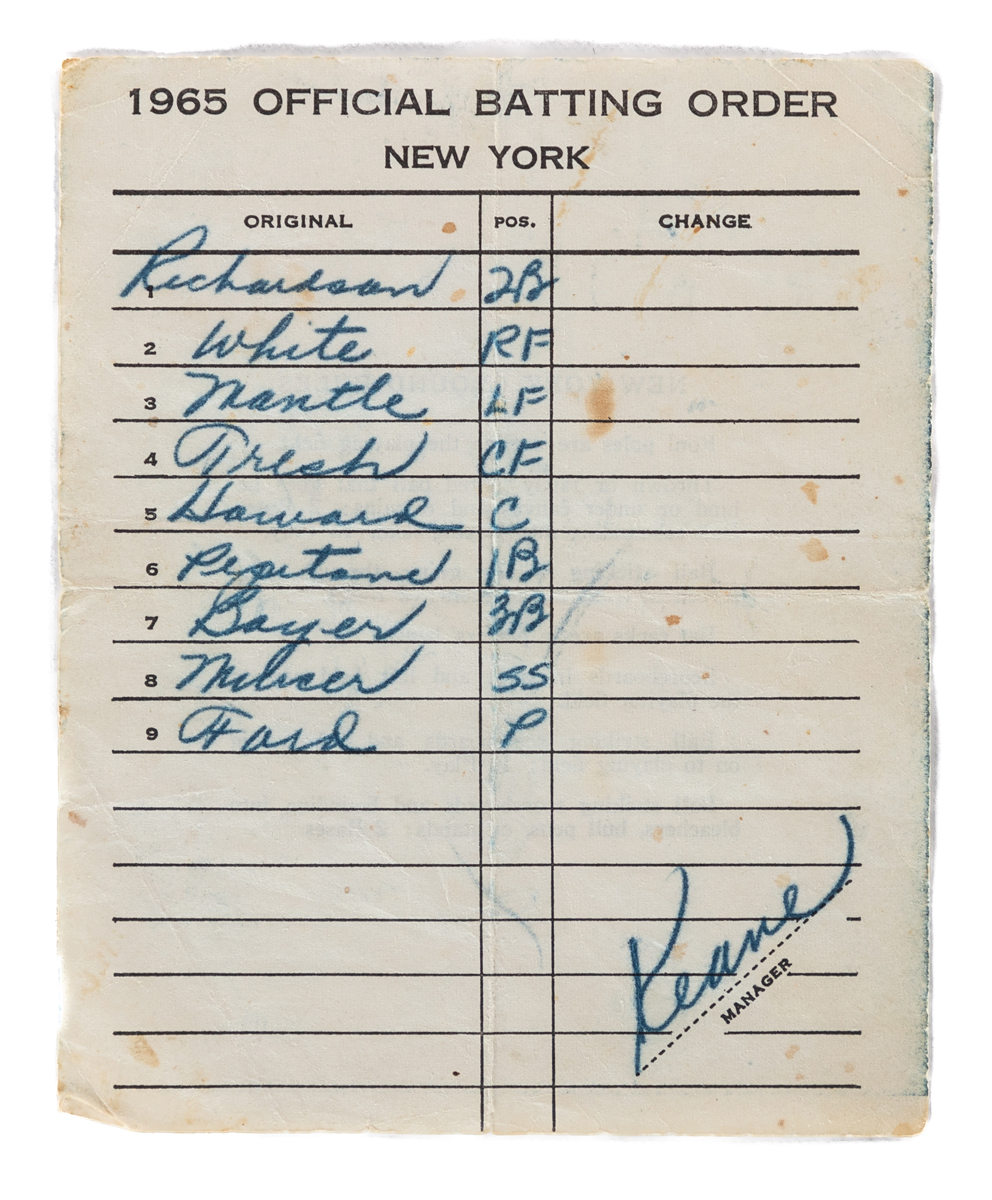 1965 OFFICIAL BATTING ORDER
NEW YORK
ORIGINAL POS. CHANGE
1 Richardson 2B
2 White RF
3 Mantle LF
4 Tresh CF
5 Howard C
6 Pepitone 1B
7 Boyer 3B
8 Murcer SS
9 Ford P
Keane
MANAGER